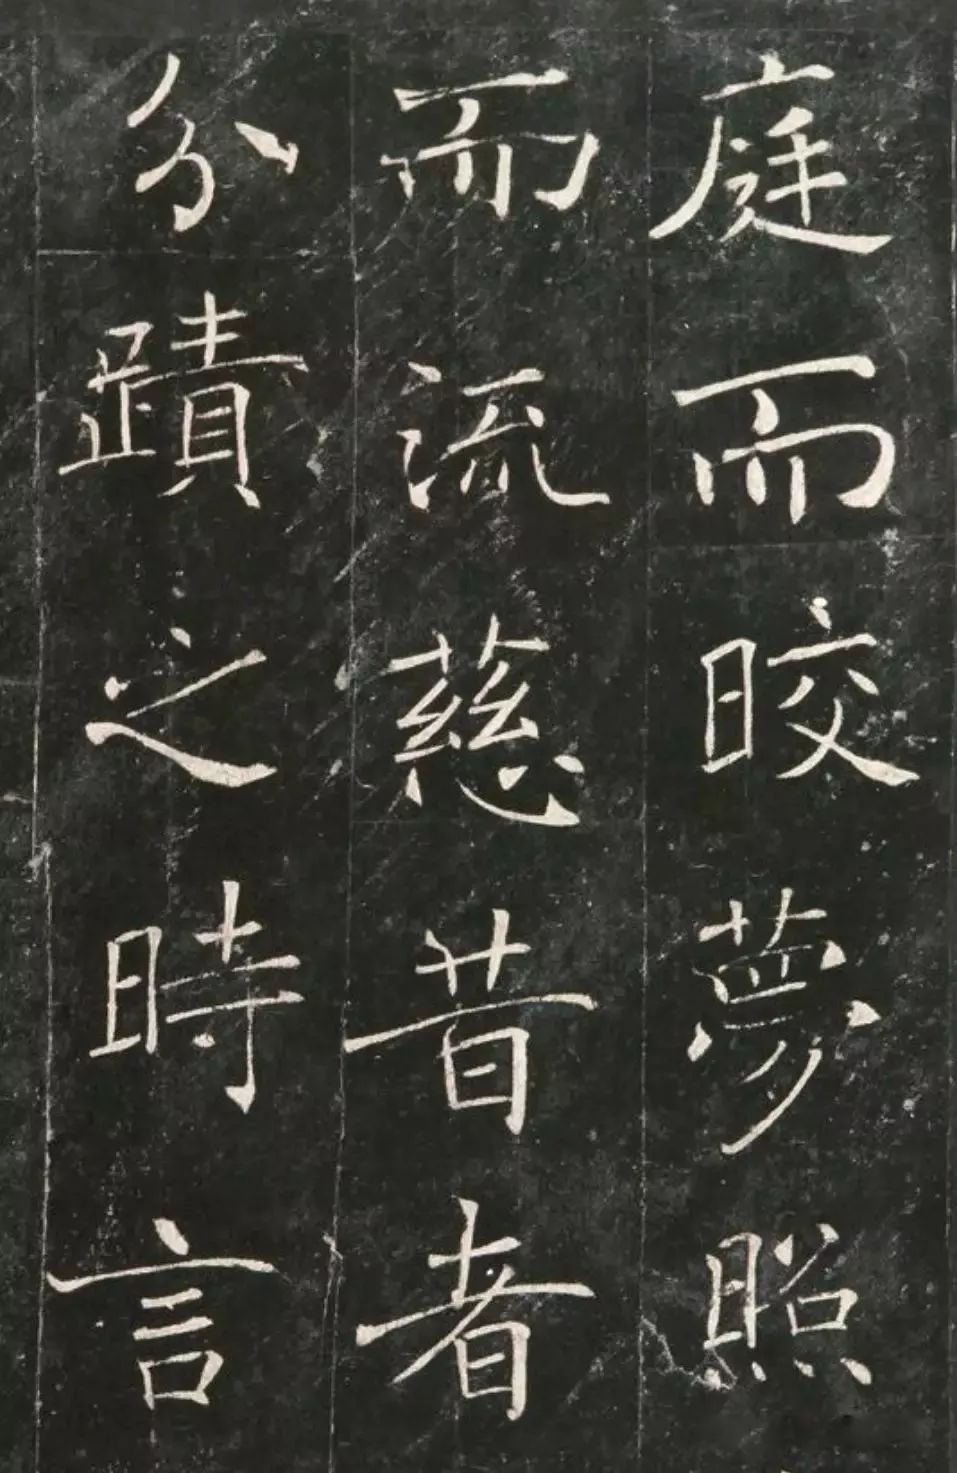 庭而晈夢照
而流慈昔者
分蹟之時言